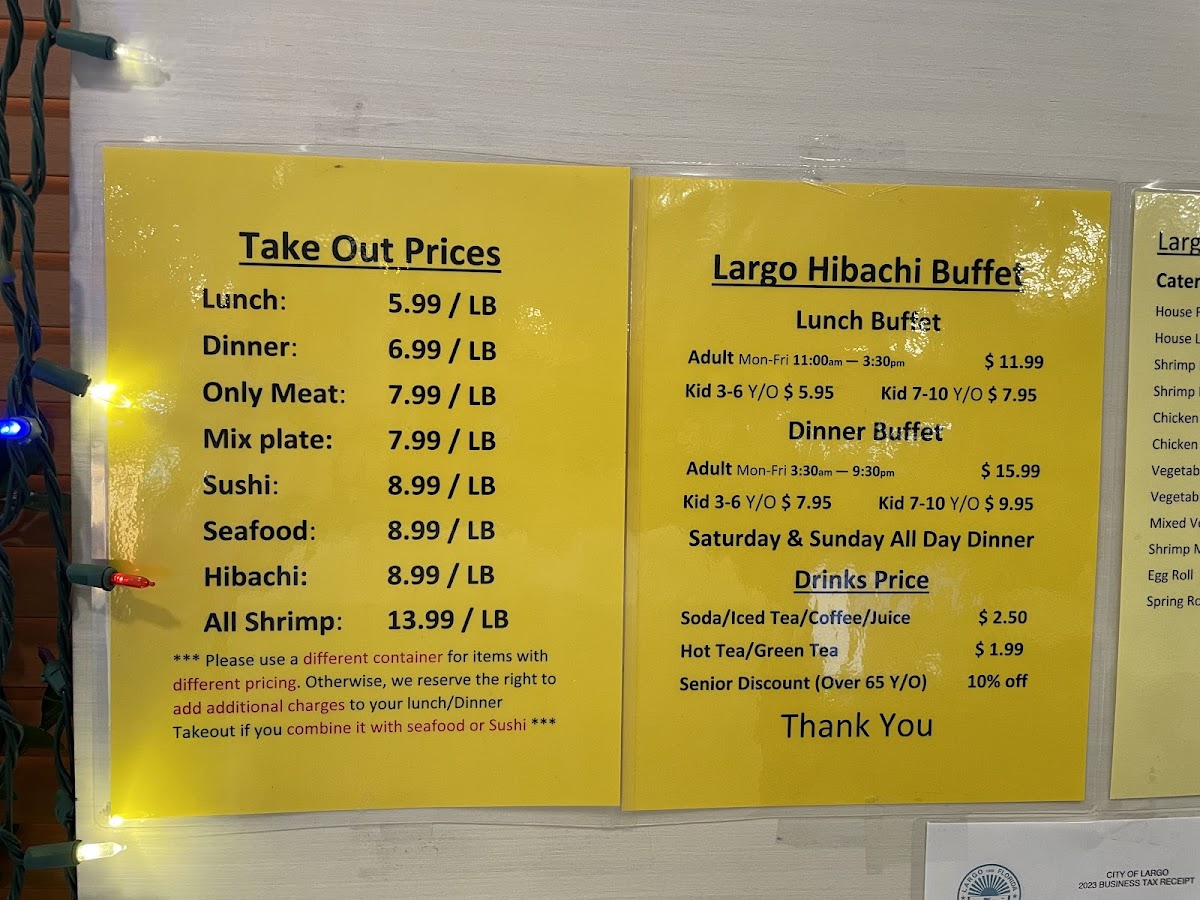 Take Out Prices
Lunch: 5.99 / LB
Dinner: 6.99 / LB
Only Meat: 7.99 / LB
Mix plate: 7.99 / LB
Sushi: 8.99 / LB
Seafood: 8.99 / LB
Hibachi: 8.99 / LB
All Shrimp: 13.99 / LB
*** Please use a different container for items with
different pricing. Otherwise, we reserve the right to
add additional charges to your lunch/Dinner
Takeout if you combine it with seafood or Sushi ***
Largo Hibachi Buffet
Lunch Buffet
Adult Mon-Fri 11:00am — 3:30pm $ 11.99
Kid 3-6 Y/O $ 5.95 Kid 7-10 Y/O $ 7.95
Dinner Buffet
Adult Mon-Fri 3:30am — 9:30pm $ 15.99
Kid 3-6 Y/O $ 7.95 Kid 7-10 Y/O $ 9.95
Saturday & Sunday All Day Dinner
Drinks Price
Soda/Iced Tea/Coffee/Juice $ 2.50
Hot Tea/Green Tea $ 1.99
Senior Discount (Over 65 Y/O) 10% off
Thank You
Larg
Cater
House F
House L
Shrimp
Shrimp
Chicken
Chicken
Vegetab
Vegetab
Mixed Ve
Shrimp M
Egg Roll
Spring Ro
LARGO FLORIDA
CITY OF LARGO
2023 BUSINESS TAX RECEIPT